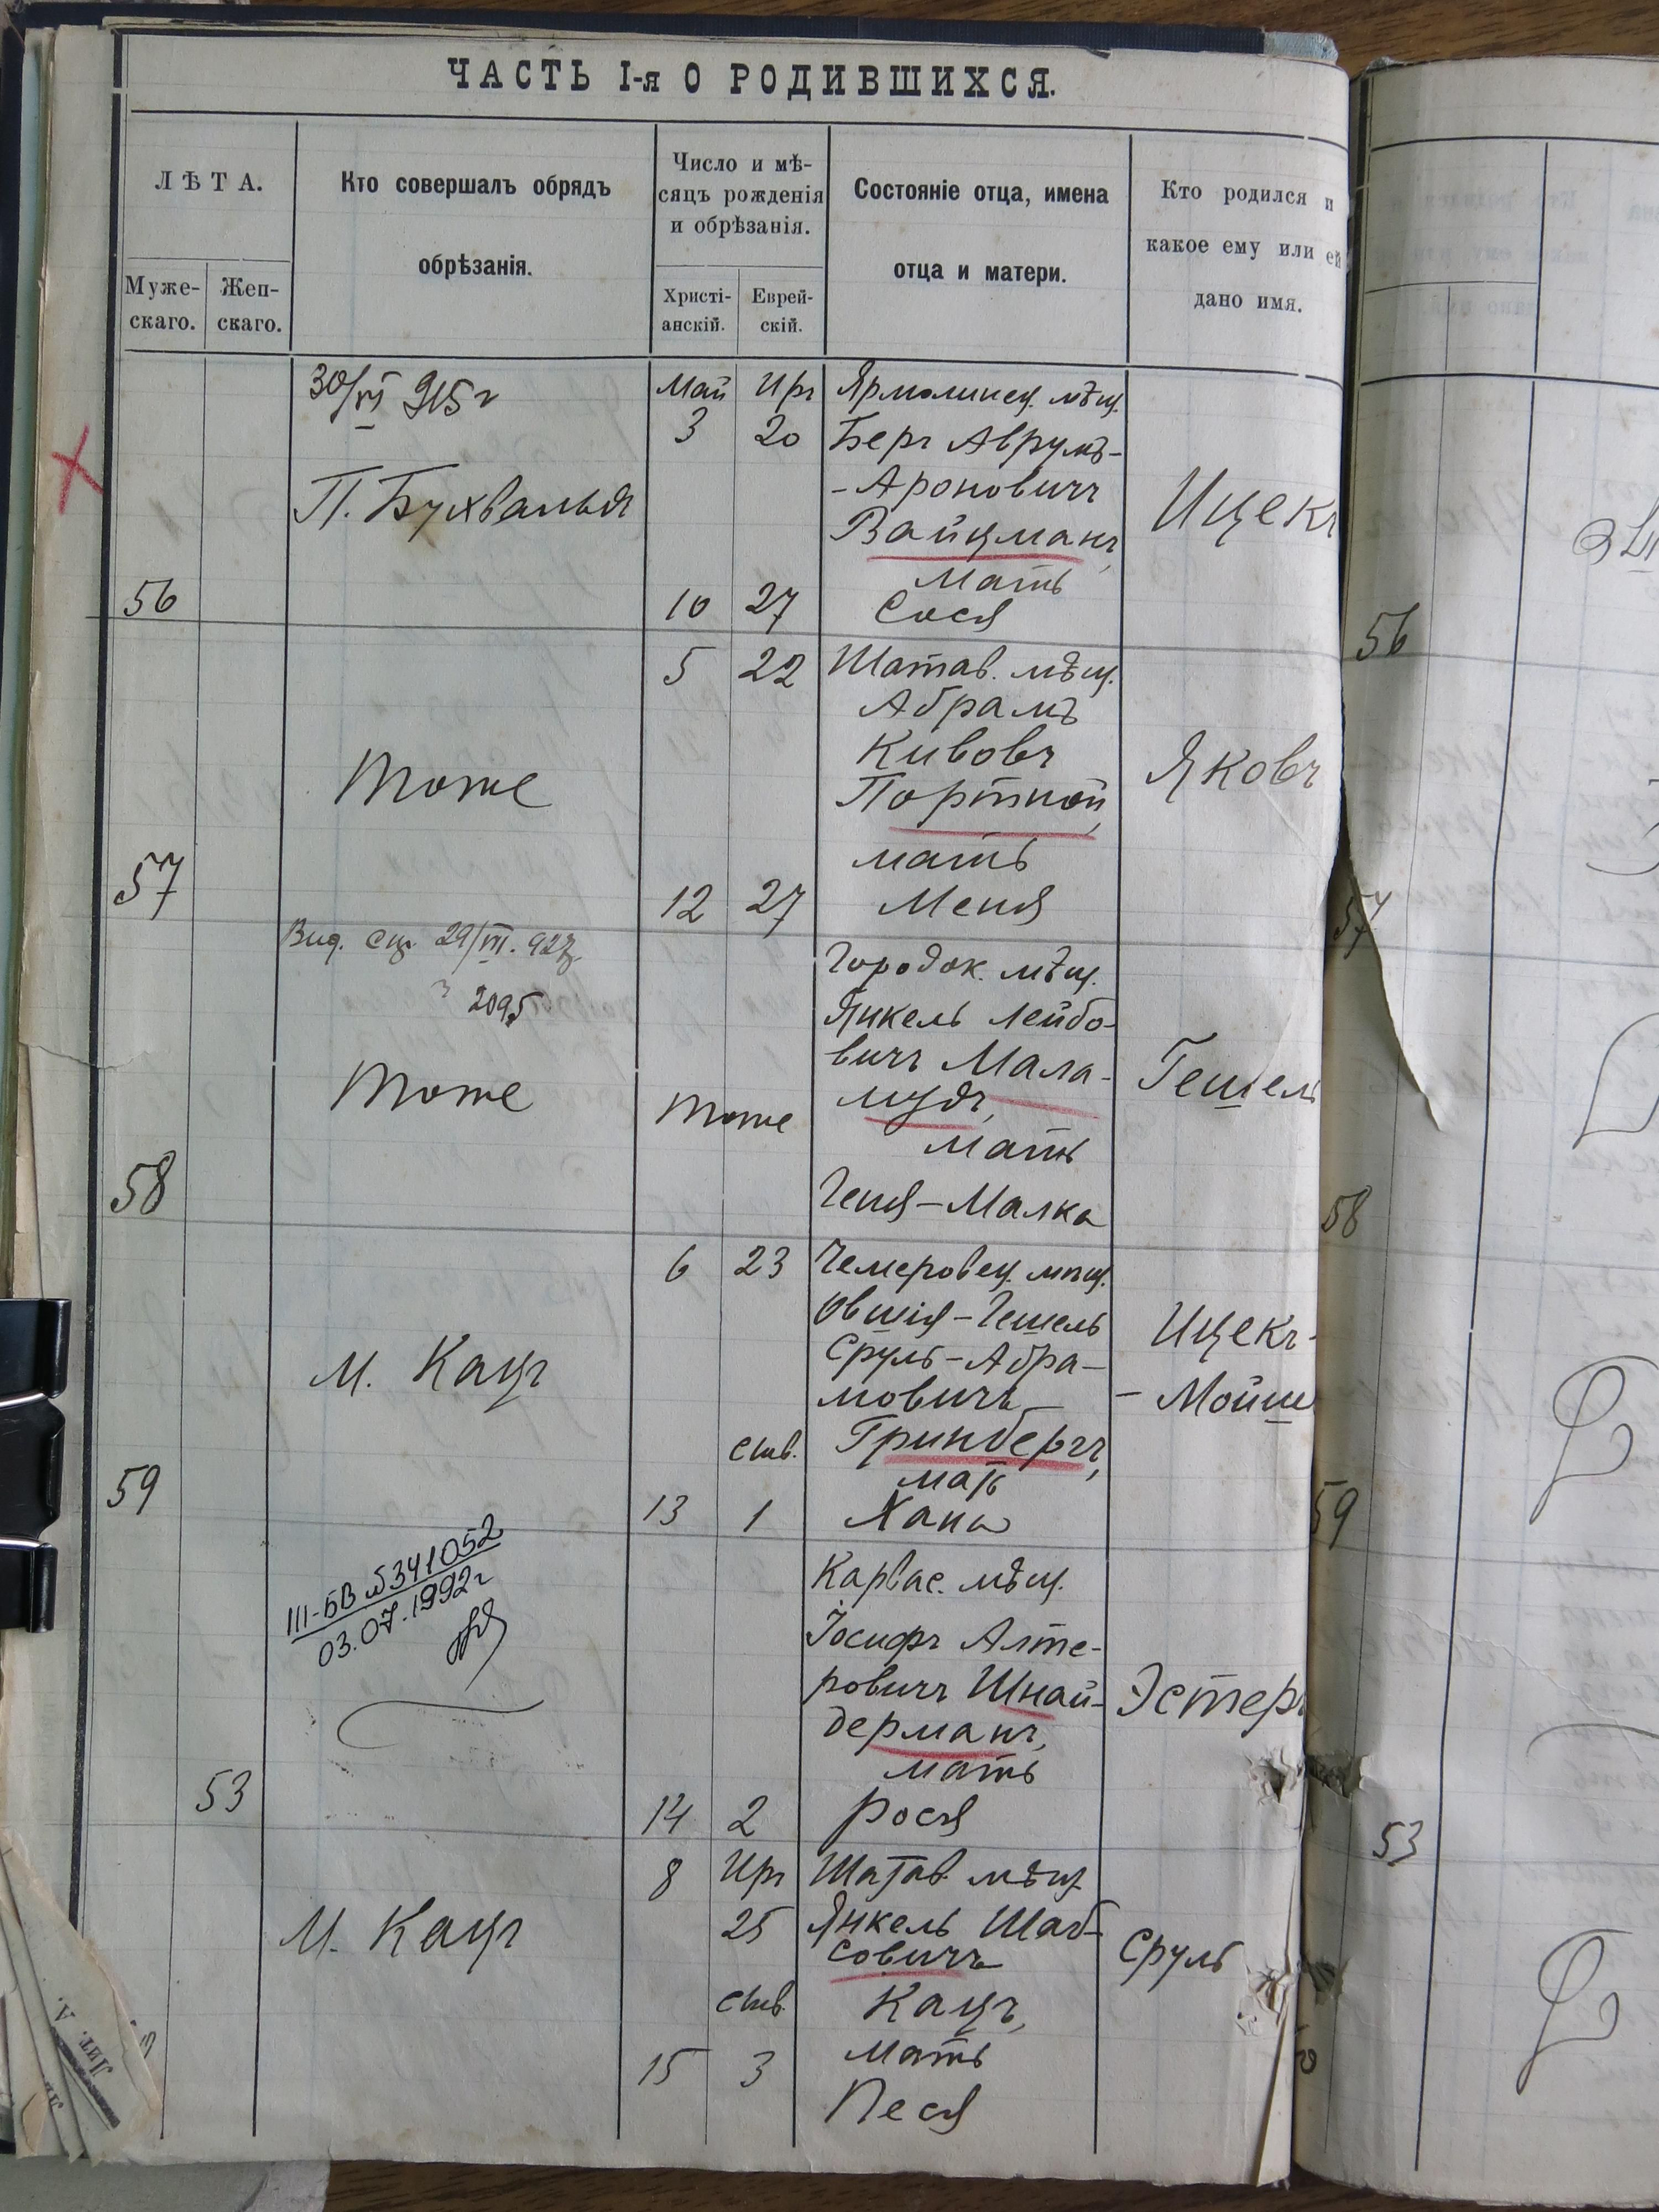 ЧАСТЬ I-я О РОДИВШИХСЯ.
ЛѢТА.
Муже-
скаго.
Жен-
скаго.
Кто совершалъ обрядъ
обрѣзанія.
Число и мѣ-
сяцъ рожденія
и обрѣзанія.
Христі-
анскій.
Еврей-
скій.
Состояніе отца, имена
отца и матери.
Кто родился и
какое ему или ей
дано имя.
30/VI 915 г
П. Бухвальд
56
Май Иръ
3 20
10 27
Ярмолинец. мѣщ.
Беръ Аврумъ-
-Ароновичъ
Вайцманъ,
мать
Сося
Ицекъ
56
Тоже
57
5 22
12 27
Шатав. мѣщ.
Абрамъ
Кивовъ
Портной,
мать
Меня
Яковъ
57
Вид. 29/VII. 927
2095
Тоже
58
Тоже
Городок. мѣщ.
Янкель Лейбо-
вичъ Мала-
мудъ,
мать
Геня-Малка
Гешель
58
М. Кацъ
59
6 23
сив.
13 1
Чемеровец. мѣщ.
Овшія-Гешель
Сруль-Абра-
мовичъ
Гринбергъ,
мать
Хана
Ицекъ-
-Мойше
59
III-БВ №341052
03.07.1992г
53
14 2
Карвас. мѣщ.
Іосифъ Алте-
ровичъ Шнай-
дерманъ,
мать
Рося
Эстеръ
53
М. Кацъ
8 Иръ
25
сив.
15 3
Шатав. мѣщ.
Янкель Шаб-
совичъ
Кацъ,
мать
Песя
Сруль
Лит. А.